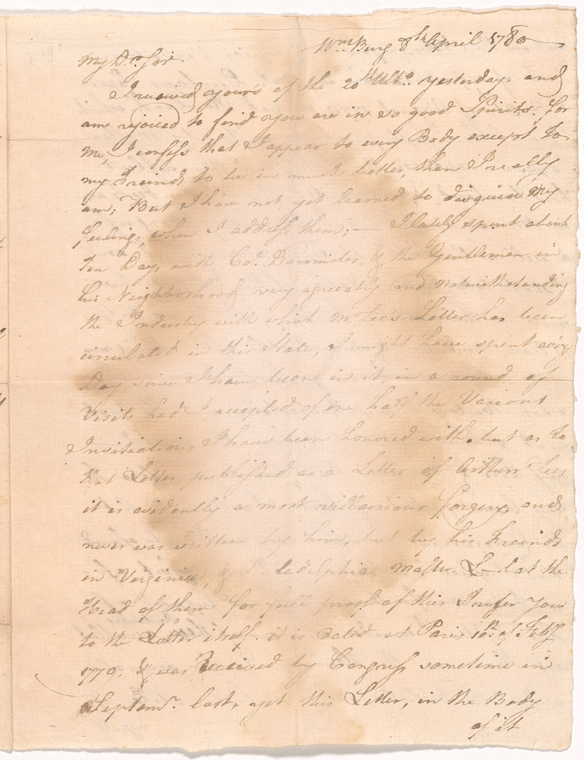 Wmsburg 8th April 1780
My Dr. Sir
I received yours of the 20th Ulto. yesterday and
am rejoiced to find you are in so good Spirits, for
me, I confess that I appear to every Body except to
my Freinds to be in much better, than I really
am, But I have not yet learned to disguise My
feelings, when I address them; — I lately spent about
Ten Days, with Col. Bannister, & the Gentlemen in
his Neighborhood, very agreeably and notwithstanding
the Industry with which Mr Lees Letter has been
circulated in this State, I might have spent every
Day since I have been in it, in a round of
Visits had I accepted of one half the Various
Invitations I have been honored with, but as to
Letter published as a Letter of Arthur Lees
it is evidently a most villainous forgery, and
never was written by him, but by his Freinds
in Virginia, & Philadelphia, at the
Head of them for full proof of this I refer You
to the Letter itself, it is dated at Paris 10th of Feby
& was Received by Congress sometime in
Septemr. last, yet this Letter, in the Body
of it